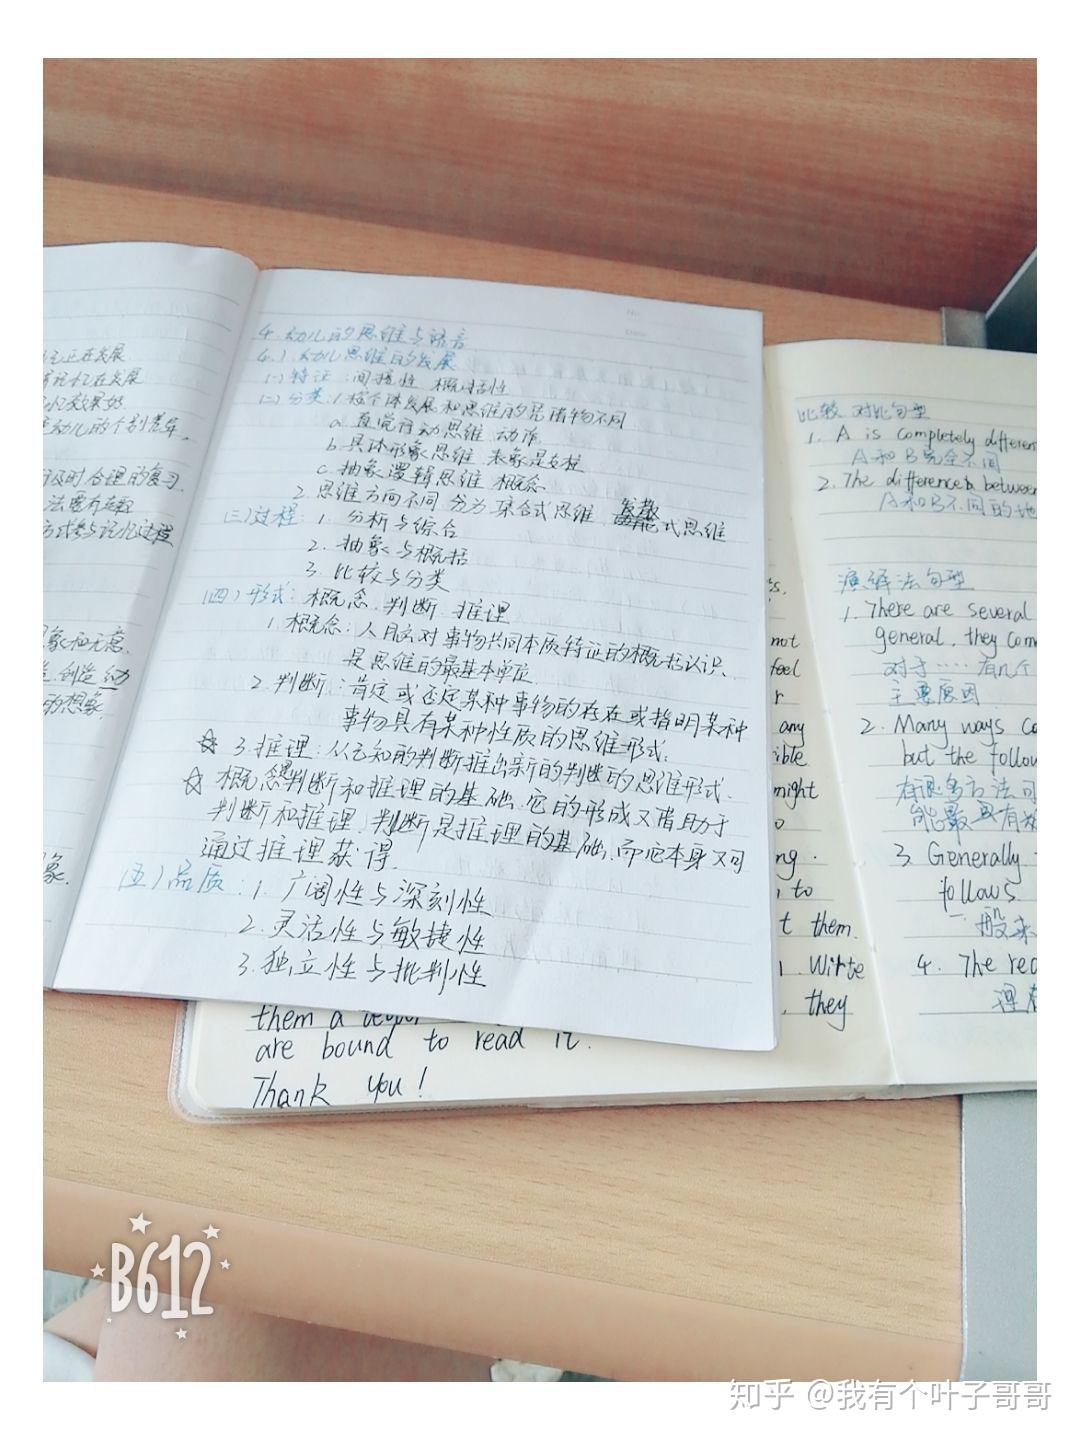 4. 幼儿的思维与语言
4.1 幼儿思维的发展
(一) 特征：间接性 概括性
(二) 分类：1. 按个体发展和思维的凭借物不同
a. 直觉行动思维 动作
b. 具体形象思维 表象是支柱
c. 抽象逻辑思维 概念
2. 思维方向不同 分为 聚合式思维 发散式思维
(三) 过程：1. 分析与综合
2. 抽象与概括
3. 比较与分类
(四) 形式：概念 判断 推理
1. 概念：人脑对事物共同本质特征的概括认识
是思维的最基本单位
2. 判断：肯定或否定某种事物的存在或指明某种
事物具有某种性质的思维形式.
☆ 3. 推理：从已知的判断推出新的判断的思维形式.
☆ 概念是判断和推理的基础,它的形成又借助于
判断和推理,判断是推理的基础,而它本身又可
通过推理获得.
(五) 品质：1. 广阔性与深刻性
2. 灵活性与敏捷性
3. 独立性与批判性
正在发展
记忆在发展
效果好
幼儿的个别差异.
及时合理的复习.
方式参与记忆过程
象和无意.
创造 幼
的想象
象.
not
feel
r
any
ible
might
o
ng.
, to
t them.
Write
, they
them a
are bound to read it.
Thank you!
比较 对比句型
1. A is completely differen
A和B完全不同
2. The difference between
A和B不同的地
演绎法句型
1. There are several
general, they com
对于……有几个
主要原因
2. Many ways co
but the follow
有很多方法可
能最具有效
3. Generally
follows
一般来
4. The rea
理
B612
知乎 @我有个叶子哥哥